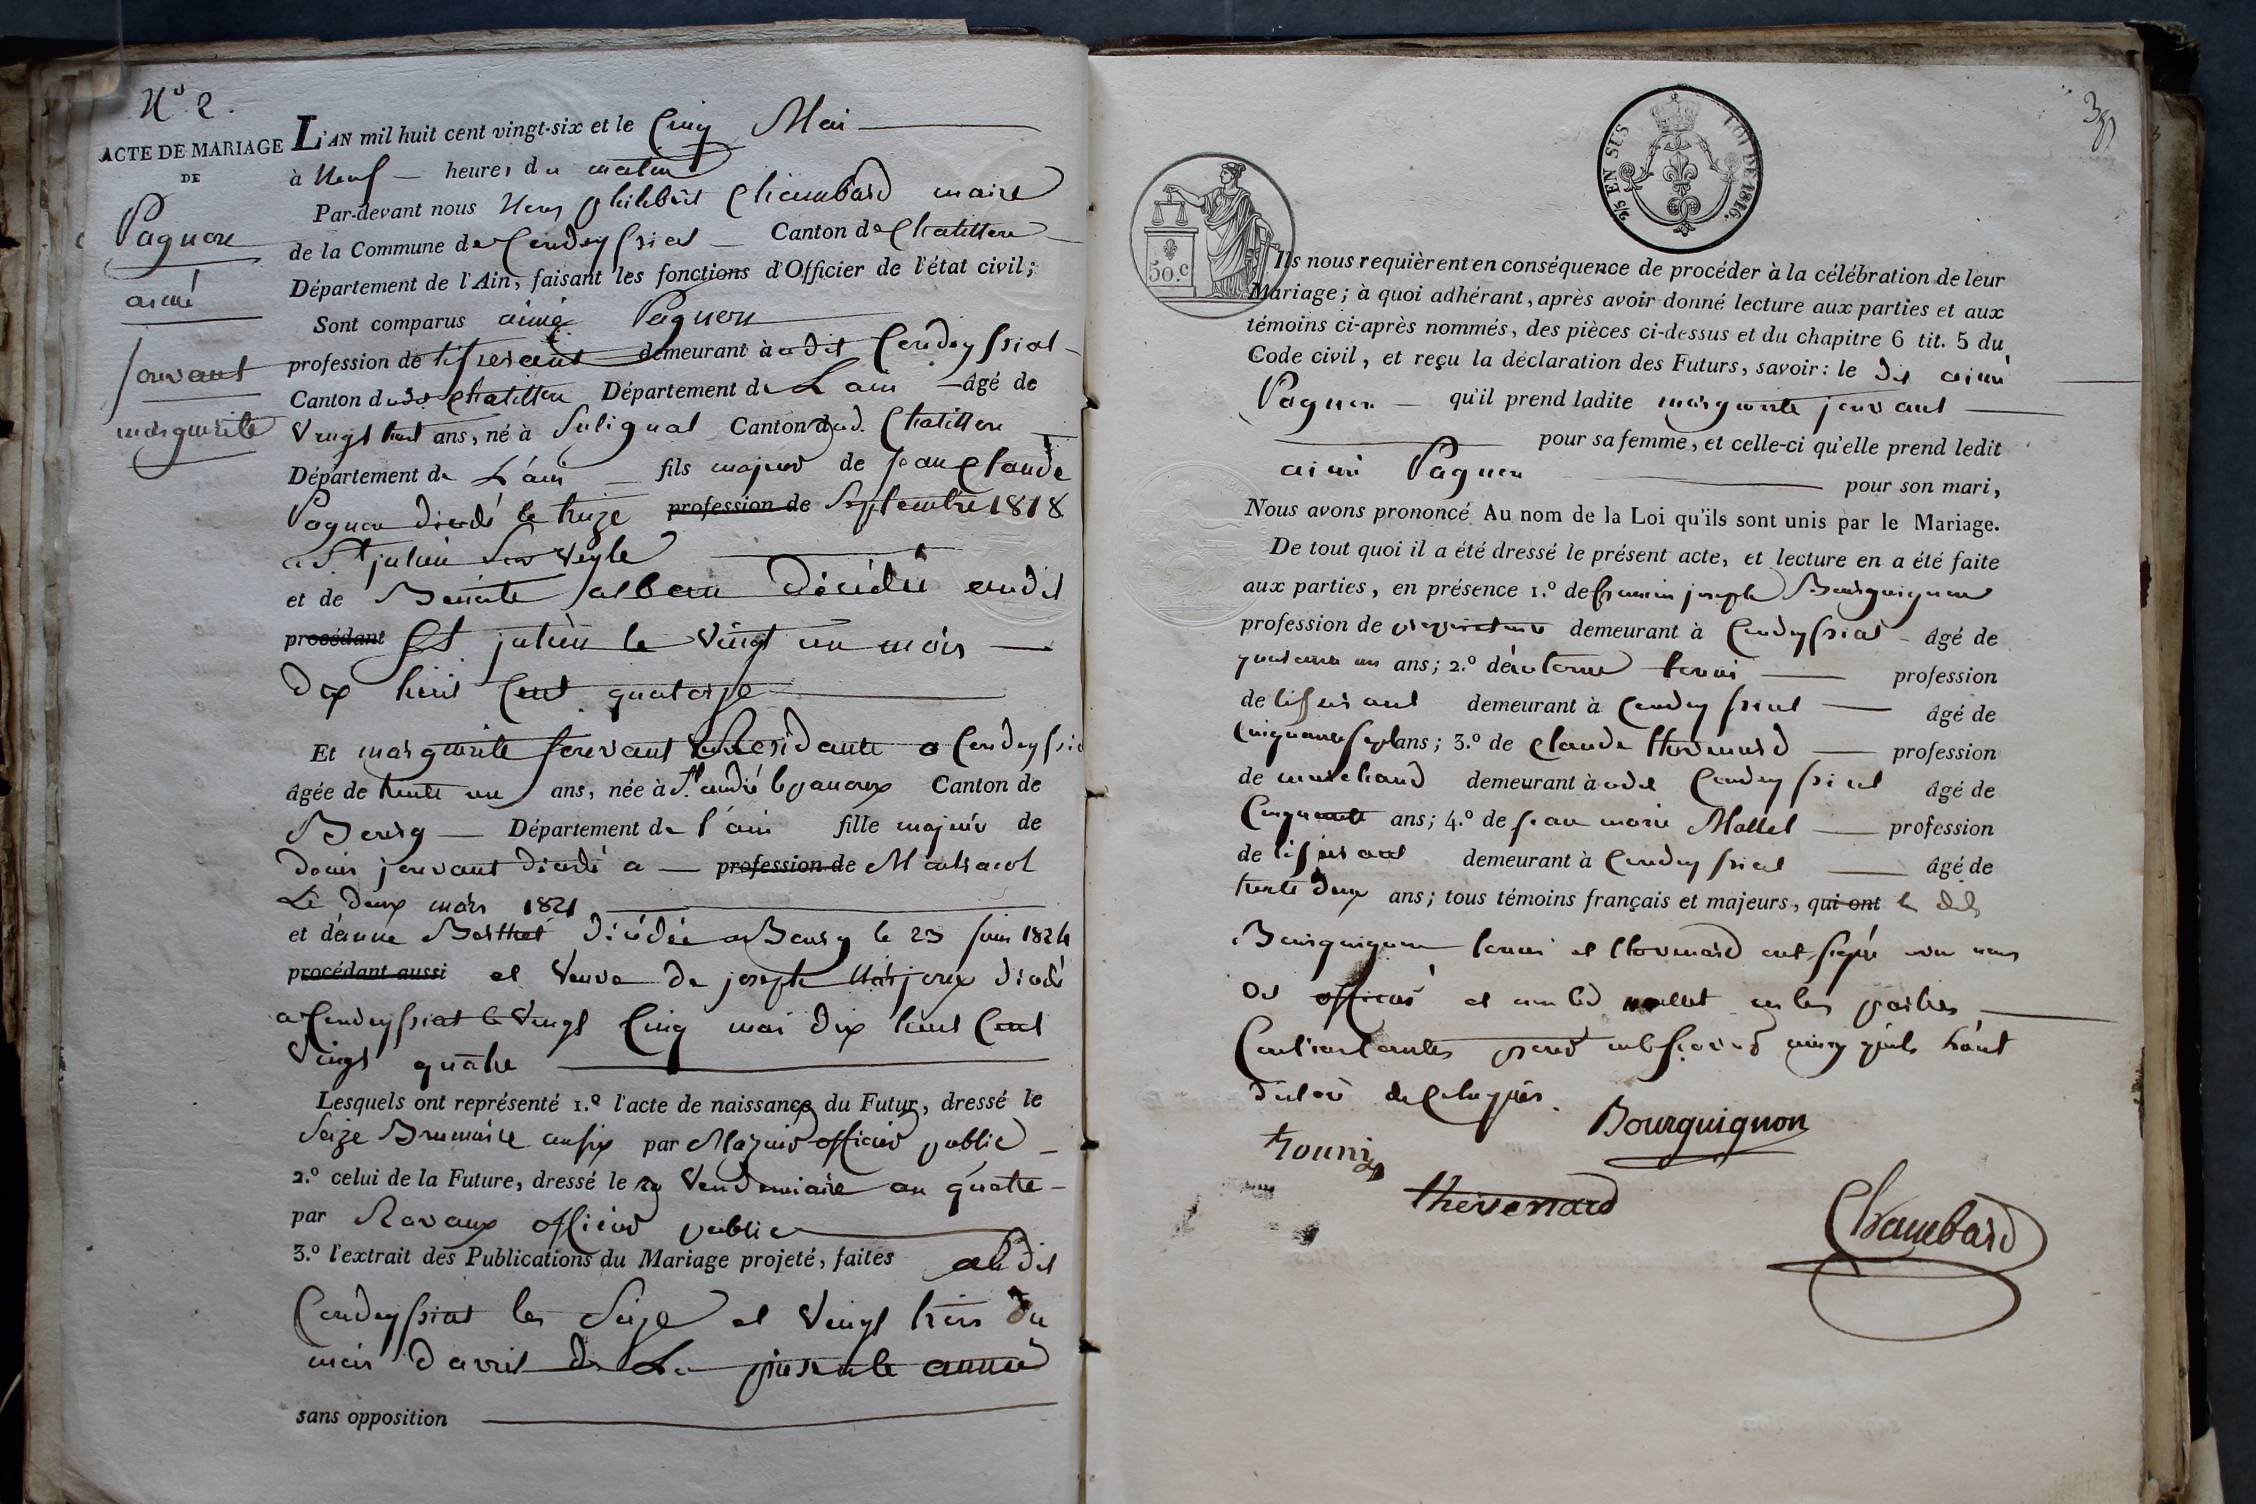 N.º 2.
ACTE DE MARIAGE
DE
Pagnon
aimé
jouvant
marguerite
L'AN mil huit cent vingt-six et le Cinq Mai
à Neuf heures du matin
Par-devant nous Nous philibert Chambard maire
de la Commune de Condeyssiat Canton de Chatillon
Département de l'Ain, faisant les fonctions d'Officier de l'état civil;
Sont comparus aimé Pagnon
profession de tisserant demeurant à udit Condeyssiat
Canton dudit Chatillon Département de L'ain âgé de
vingt huit ans, né à Sulignat Canton dud. Chatillon
Département de L'ain fils majeur de jean Claude
Pagnon décédé le treize profession de Septembre 1818
a St julien Sur Veyle
et de Benoite alban Décédée audit
procédant St julien le vingt un mars
dix huit Cent quatorze
Et marguerite Jouvant Residante a Condeyssiat
âgée de trente un ans, née à St andré le panoux Canton de
Bourg Département de l'ain fille majeure de
denis jouvant décédé a profession de Montracol
Le deux mars 1821
et de anne Barthet Décédée a Bourg le 23 juin 1824
procédant aussi et veuve de joseph décédé
a Condeyssiat le vingt Cinq mai dix huit Cent
vingt quatre
Lesquels ont représenté 1.º l'acte de naissance du Futur, dressé le
Seize Brumaire an six par officier public
2.º celui de la Future, dressé le 29 Vendemiaire an quatre
par Ravaux officier public
3.º l'extrait des Publications du Mariage projeté, faites audit
Condeyssiat les Seize et vingt trois du
mois davril de La presente année
sans opposition
30.c
2/5 EN SUS
LOI DE 1816.
Ils nous requièrent en conséquence de procéder à la célébration de leur
Mariage; à quoi adhérant, après avoir donné lecture aux parties et aux
témoins ci-après nommés, des pièces ci-dessus et du chapitre 6 tit. 5 du
Code civil, et reçu la déclaration des Futurs, savoir: le dit aimé
Pagnon qu'il prend ladite marguerite jouvant
pour sa femme, et celle-ci qu'elle prend ledit
aimé Pagnon pour son mari,
Nous avons prononcé Au nom de la Loi qu'ils sont unis par le Mariage.
De tout quoi il a été dressé le présent acte, et lecture en a été faite
aux parties, en présence 1.º de joseph Bourguignon
profession de proprietaire demeurant à Condeyssiat âgé de
quarante un ans; 2.º de profession
de tisserant demeurant à Condeyssiat âgé de
Cinquante sept ans; 3.º de Claude thevenard profession
de marchand demeurant à udit Condeyssiat âgé de
Cinquante ans; 4.º de jean marie Mollet profession
de tisserant demeurant à Condeyssiat âgé de
trente deux ans; tous témoins français et majeurs, qui ont le dit
Bourguignon touni et thevenard ont signé avec nous
et mollet les parties
Contractantes pour
Bourguignon
touni
thevenard
Chambard